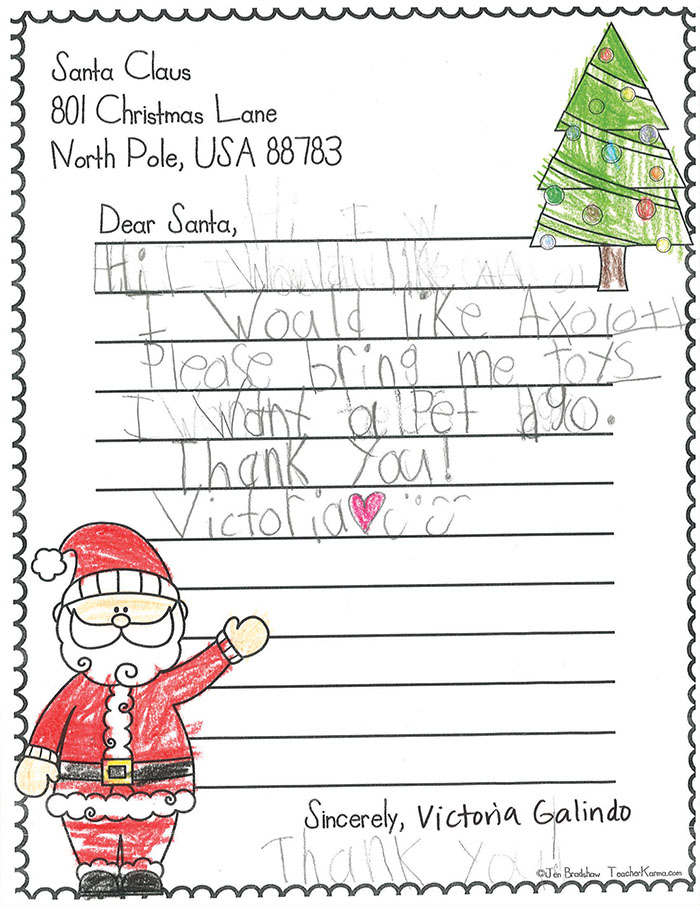 Santa Claus
801 Christmas Lane
North Pole, USA 88783
Hi I w
Dear Santa,
Hi I Would like
I would like Axolotl
Please bring me toys
I want a Pet dgo.
Thank You!
Victoria
Sincerely, Victoria Galindo
Thank you!
©Jen Bradshaw TeacherKarma.com